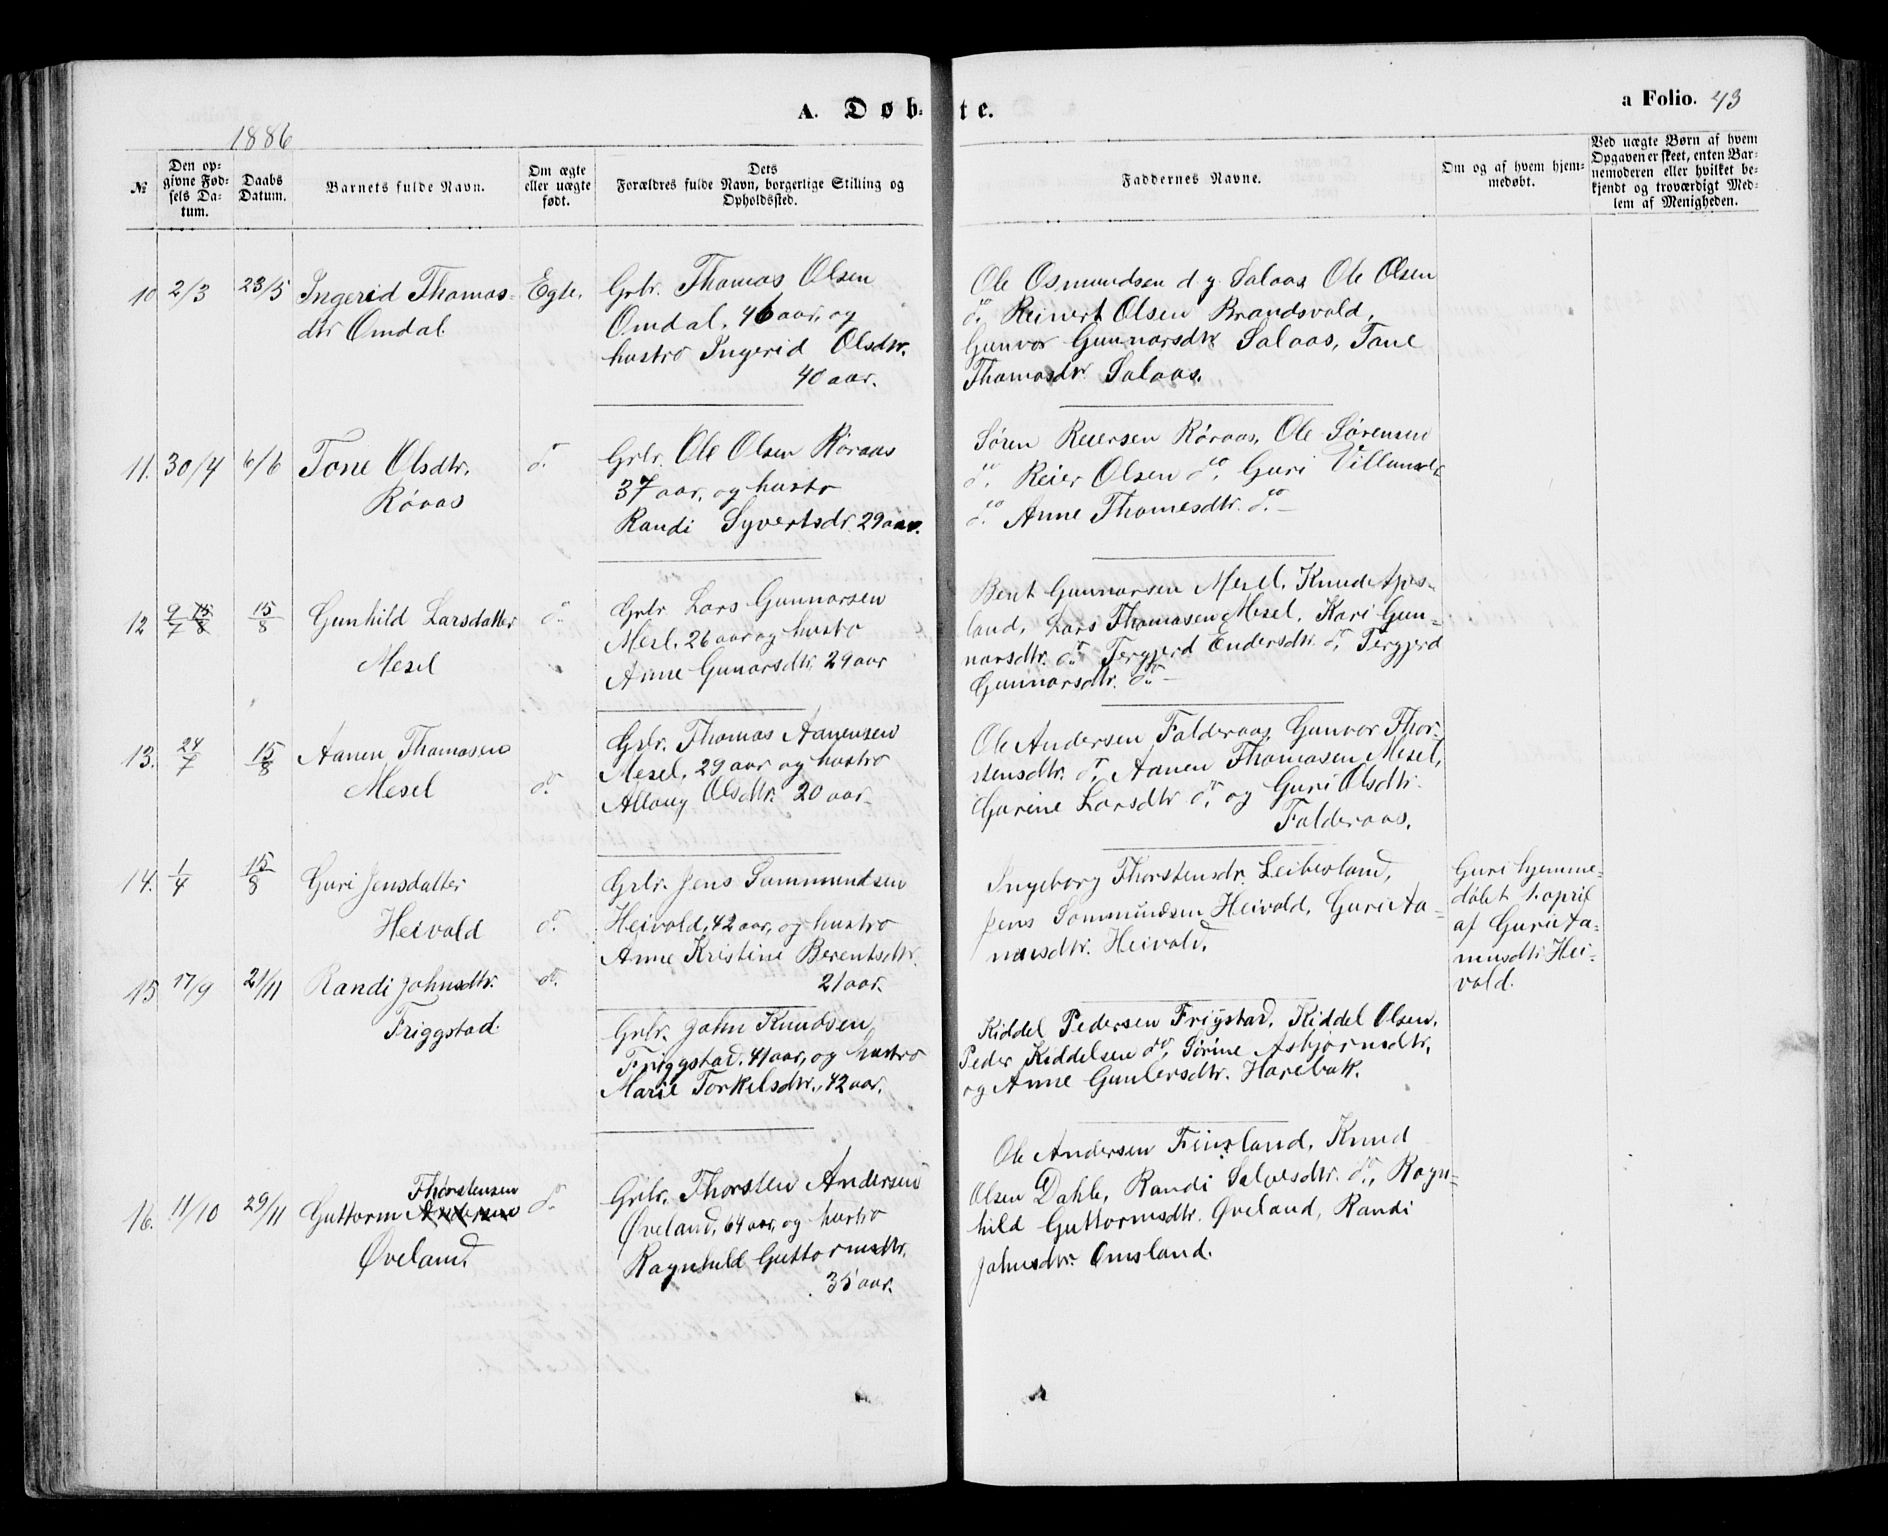 A. Døb-
te.
a Folio. 43
1886
№
Den op-
givne Fød-
sels Da-
tum.
Daabs
Datum.
Barnets fulde Navn.
Om ægte
eller uægte
født.
Dets
Forældres fulde Navn, borgerlige Stilling og
Opholdssted.
Faddernes Navne.
Om og af hvem hjem-
medøbt.
Ved uægte Børn af hvem
Opgaven er skeet, enten Bar-
nemoderen eller hvilket be-
kjendt og troværdigt Med-
lem af Menigheden.
10 2/3 23/5 Ingerid Thomas-
dtr Omdal.
Egte.
Grbr. Thomas Olsen
Omdal, 46 aar, og
hustro Ingerid Olsdtr.
40 aar.
Ole Osmundsen d. y. Salaas, Ole Olsen
do. Reinert Olsen Brandsvold,
Gunvor Gunnarsdtr Salaas, Tone
Thomasdtr. Salaas.
11. 30/4 6/6 Tone Olsdtr.
Røraas
do.
Grbr. Ole Olsen Røraas
37 aar, og hustro
Randi Syvertsdr. 29 aar.
Søren Reiersen Røraas, Ole Sørensen
do. Reier Olsen do, Guri
do. Anne Thomesdtr. do. —
12 9/7 15/8 15/8 Gunhild Larsdatter
Mesel
do.
Grbr Lars Gunnarsen
Mesl. 26 aar og hustro
Anne Gunarsdtr. 29 aar
Berit Gunnarsen Mesel, Knud Apes-
land, Lars Thomasen Mesel, Kari Gun-
narsdtr. do. Tergjerd Endersdtr. do, Tergjerd
Gunnarsdtr. do. —
13. 24/7 15/8 Aanen Thomasen
Mesel
do.
Grbr. Thomas Aanensen
Mesel, 29 aar og hustro
Allaug Olsdtr. 20 aar.
Ole Andersen Falderaas, Gunvor Thor-
stensdtr. do, Aanen Thomasen Mesel,
Gurine Larsdtr do, og Guri Olsdtr.
Falderaas.
14. 1/4 15/8 Guri Jensdatter
Heivold
do.
Grbr. Jens Sammundsen
Heivold, 42 aar, og hustro
Anne Kristine Berentsdtr.
21 aar.
Ingeborg Thorstensdr. Leibesland,
Jens Sammundsen Heivold, Gurie Aa-
nensdtr. Heivold.
Guri hjemme-
døbt 1. april
af Gurie Aa-
nensdtr. Hei-
vold.
15 17/9 21/11 Randi Johnsdtr.
Friggstad.
do.
Grbr. John Knudsen
Friggstad, 41 aar, og hustro
Marie Torkelsdtr., 42 aar.
Kiddel Pedersen Frigstad, Kiddel Olsen,
Peder Kiddelsen do, Sørine Asbjørnsdtr,
og Anne Gunlersdtr. Harebak.
16. 11/10 29/11 Guttorm Andersen
Thorstensen
Øveland.
do.
Grbr. Thorsten Andersen
Øveland, 64 aar, og hustro
Ragnhild Guttormsdtr.
35 aar.
Ole Andersen Finsland, Knud
Olsen Dahle, Randi Salvesdtr. do., Ragn-
hild Guttormsdtr. Øveland, Randi
Johnsdtr. Omsland.